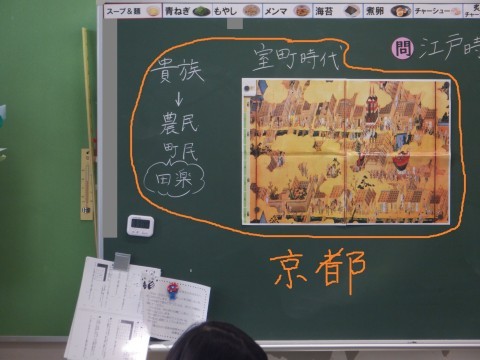 スープ&麺 青ねぎ もやし メンマ 海苔 煮卵 チャーシュー
室町時代
問 江戸時
貴族
↓
農民
町民
田楽
京都